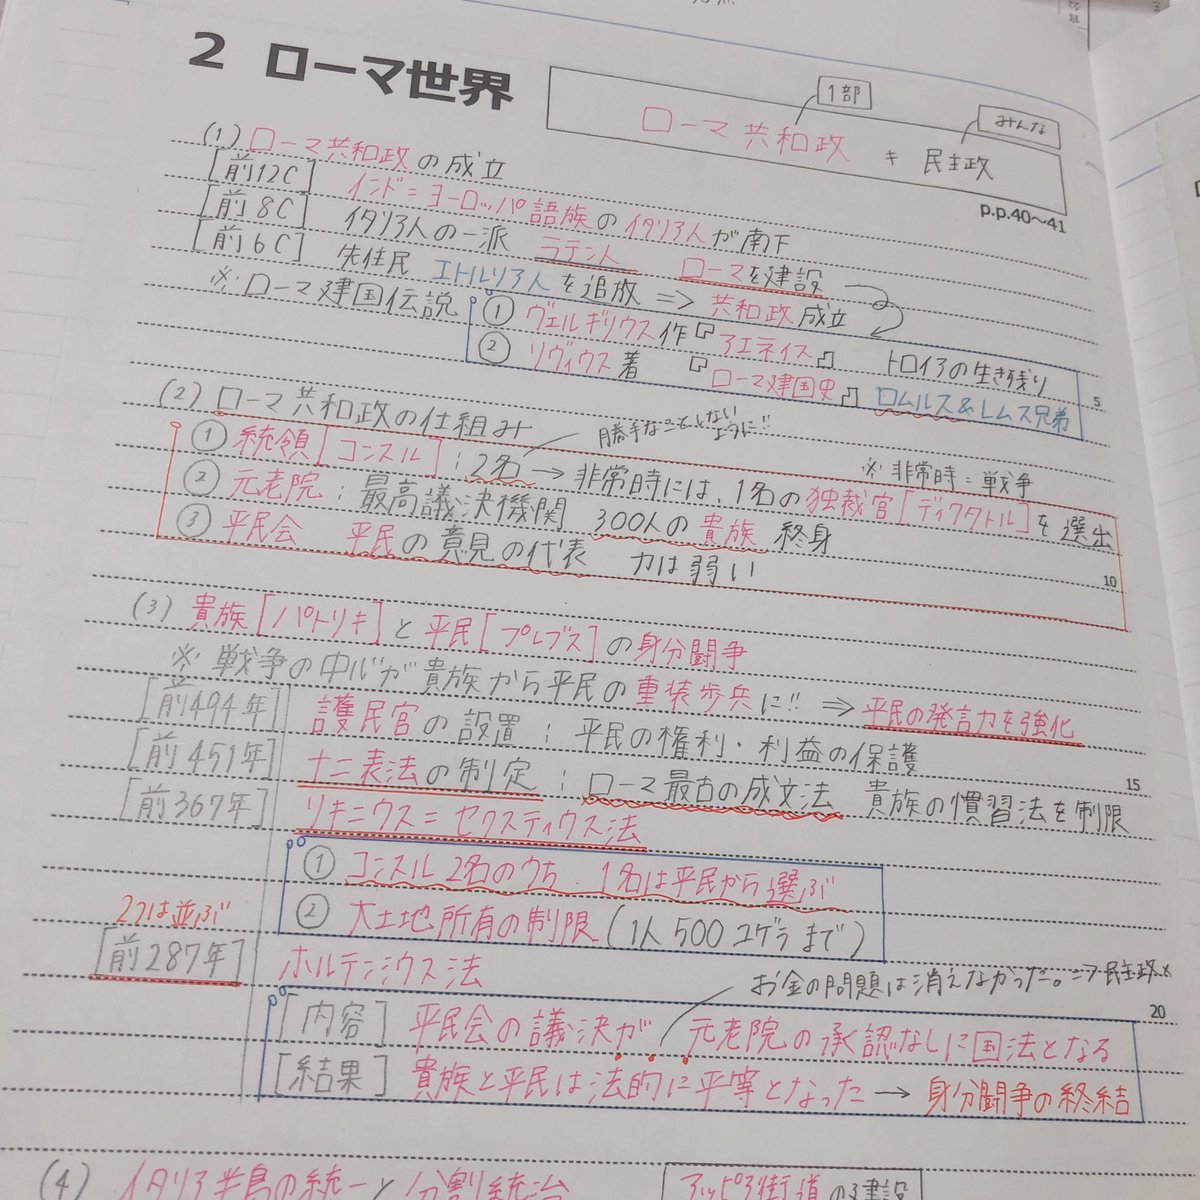 2 ローマ世界
1部
みんな
ローマ共和政 ≠ 民主政
p.p.40~41
(1) ローマ共和政の成立
[前12C] インド=ヨーロッパ語族のイタリア人が南下
[前8C] イタリア人の一派 ラテン人 ローマを建設
[前6C] 先住民 エトルリア人を追放 ⇒ 共和政成立
※ローマ建国伝説 ① ヴェルギリウス作『アエネイス』 トロイアの生き残り
② リヴィウス著『ローマ建国史』 ロムルス&レムス兄弟
5
(2) ローマ共和政の仕組み
勝手なことしないように!!
※非常時=戦争
① 統領[コンスル] : 2名 → 非常時には、1名の独裁官[ディクタトル]を選出
② 元老院 : 最高議決機関 300人の貴族 終身
③ 平民会 平民の意見の代表 力は弱い
10
(3) 貴族[パトリキ]と平民[プレブス]の身分闘争
※戦争の中心が貴族から平民の重装歩兵に!! ⇒ 平民の発言力を強化
[前494年] 護民官の設置 ; 平民の権利・利益の保護
15
[前451年] 十二表法の制定 ; ローマ最古の成文法 貴族の慣習法を制限
[前367年] リキニウス=セクスティウス法
① コンスル2名のうち、1名は平民から選ぶ
② 大土地所有の制限(1人500ユゲラまで)
2つは並ぶ
[前287年] ホルテンシウス法
お金の問題は消えなかった。⇒民主政×
20
[内容] 平民会の議決が 元老院の承認なしに国法となる
[結果] 貴族と平民は法的に平等となった → 身分闘争の終結
(4) イタリア半島の統一と分割統治 アッピア街道の建設